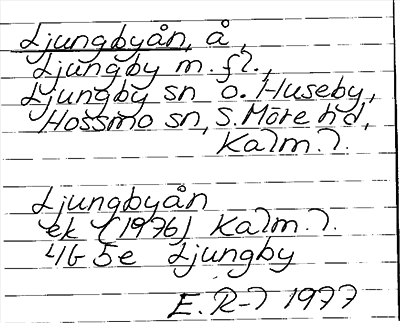 Ljungbyån, å,
Ljungby m.fl.,
Ljungby sn o. Huseby,
Hossmo sn, S. Möre hd,
Kalm. l.
Ljungbyån
ek (1976) Kalm. l.
4G 5e Ljungby
E. R-l 1977